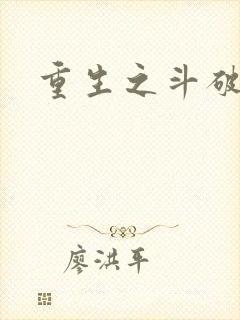 重生之斗破
廖洪平